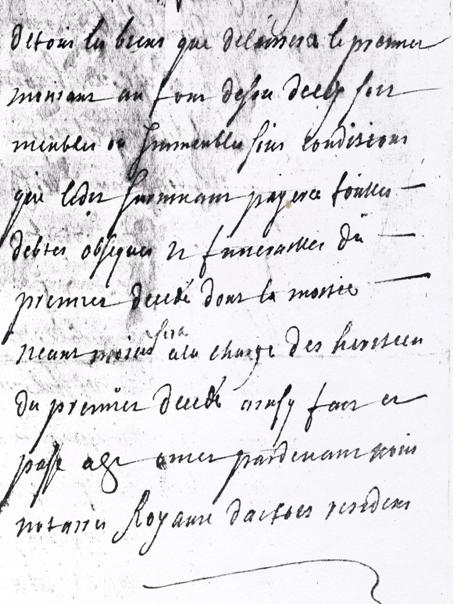 de tous les biens que delaissera le premier
mourant au jour de son deces soit
meubles ou Immeubles sous conditions
que ledit survivant payera touttes
debtes obseques et funerailles du
premier decedé dont la moitie
neant moins sera a la charge des heritiers
du premier decedé ainsy fait et
passé a pardevant nous
notaires Royaux dartois residens